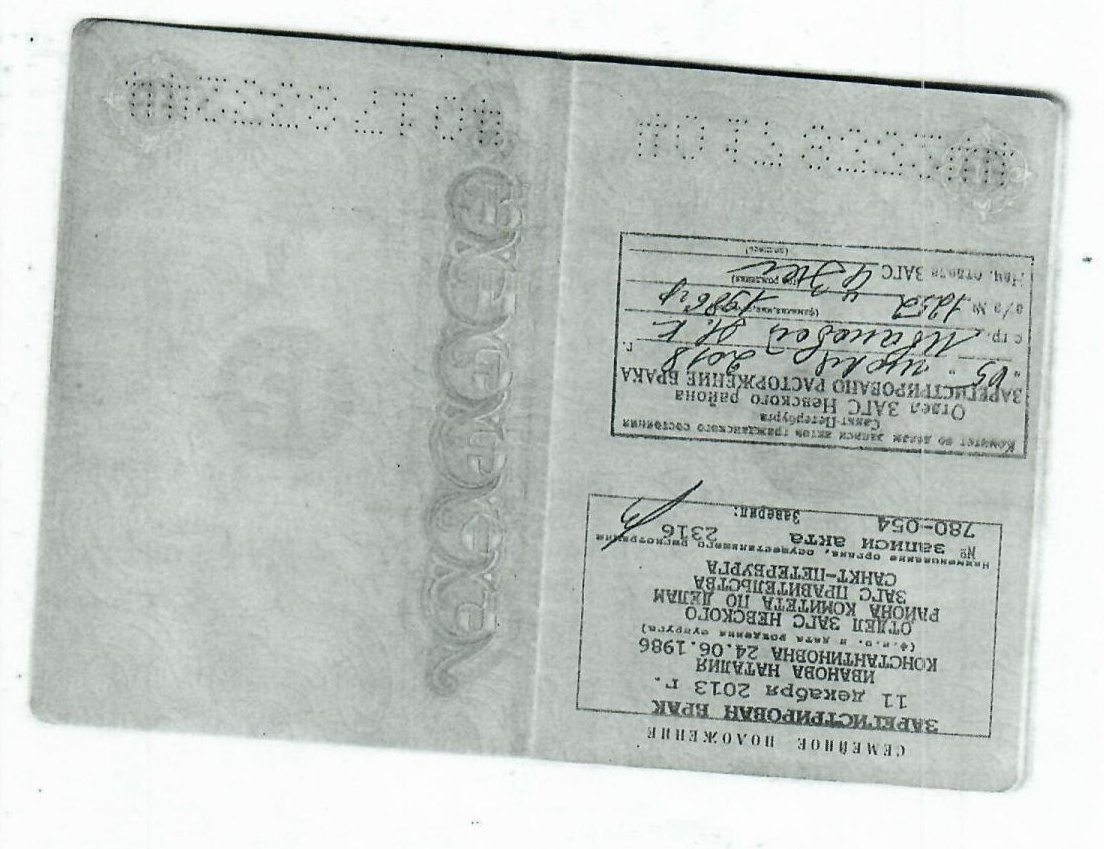 СЕМЕЙНОЕ ПОЛОЖЕНИЕ
ЗАРЕГИСТРИРОВАН БРАК
11 декабря 2013 г.
ИВАНОВА НАТАЛИЯ
КОНСТАНТИНОВНА 24.06.1986
(Ф.И.О. и дата рождения супруга)
ОТДЕЛ ЗАГС НЕВСКОГО
РАЙОНА КОМИТЕТА ПО ДЕЛАМ
ЗАГС ПРАВИТЕЛЬСТВА
САНКТ-ПЕТЕРБУРГА
наименование органа, осуществившего регистрацию
№ записи акта 2316
780-054 Заверил:
Комитет по делам записи актов гражданского состояния
Санкт-Петербурга
Отдел ЗАГС Невского района
ЗАРЕГИСТРИРОВАНО РАСТОРЖЕНИЕ БРАКА
"05" июля 2018 г.
с гр. Ивановой Н.К.
(фамилия, имя, отчество)
1986 гр
(год рождения)
а/з № 1252
Нач. отдела ЗАГС
(подпись)